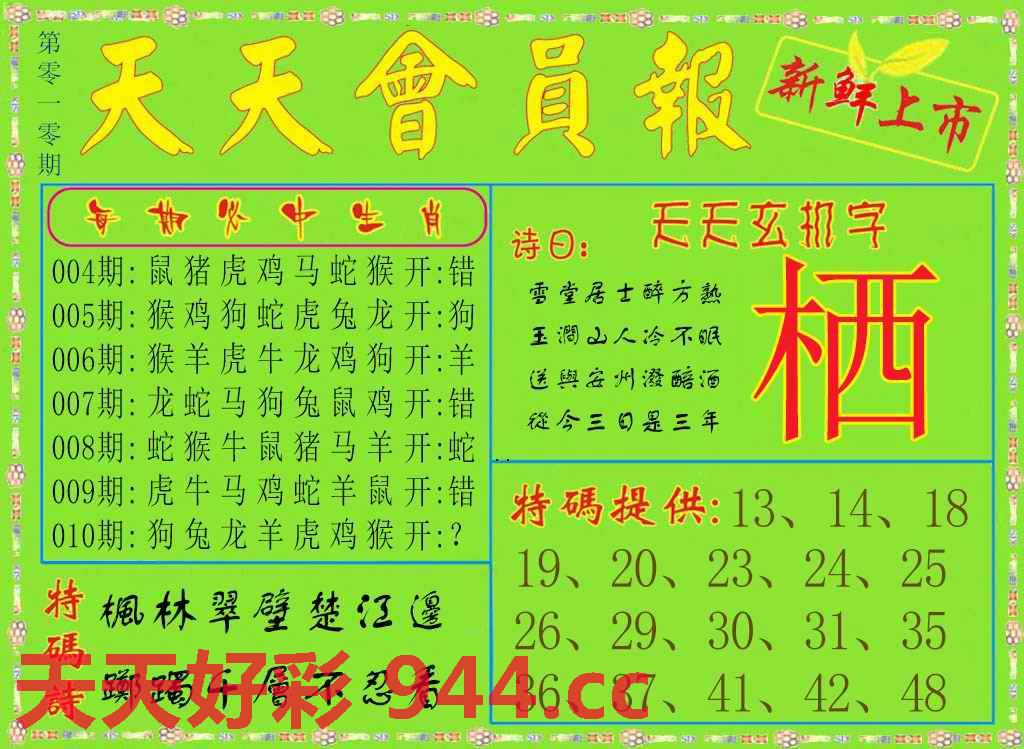 第零一零期
天天會員報
新鮮上市
每期必中生肖
004期:鼠猪虎鸡马蛇猴开:错
005期:猴鸡狗蛇虎兔龙开:狗
006期:猴羊虎牛龙鸡狗开:羊
007期:龙蛇马狗兔鼠鸡开:错
008期:蛇猴牛鼠猪马羊开:蛇
009期:虎牛马鸡蛇羊鼠开:错
010期:狗兔龙羊虎鸡猴开:?
天天玄机字
诗曰:
雪堂居士醉方熟
玉澗山人冷不眠
送與安州潑醅酒
從今三日是三年
栖
特碼提供:13、14、18
19、20、23、24、25
26、29、30、31、35
36、37、41、42、48
特碼詩
楓林翠壁楚江邊
躑躅千層不忍看
天天好彩 944.cc